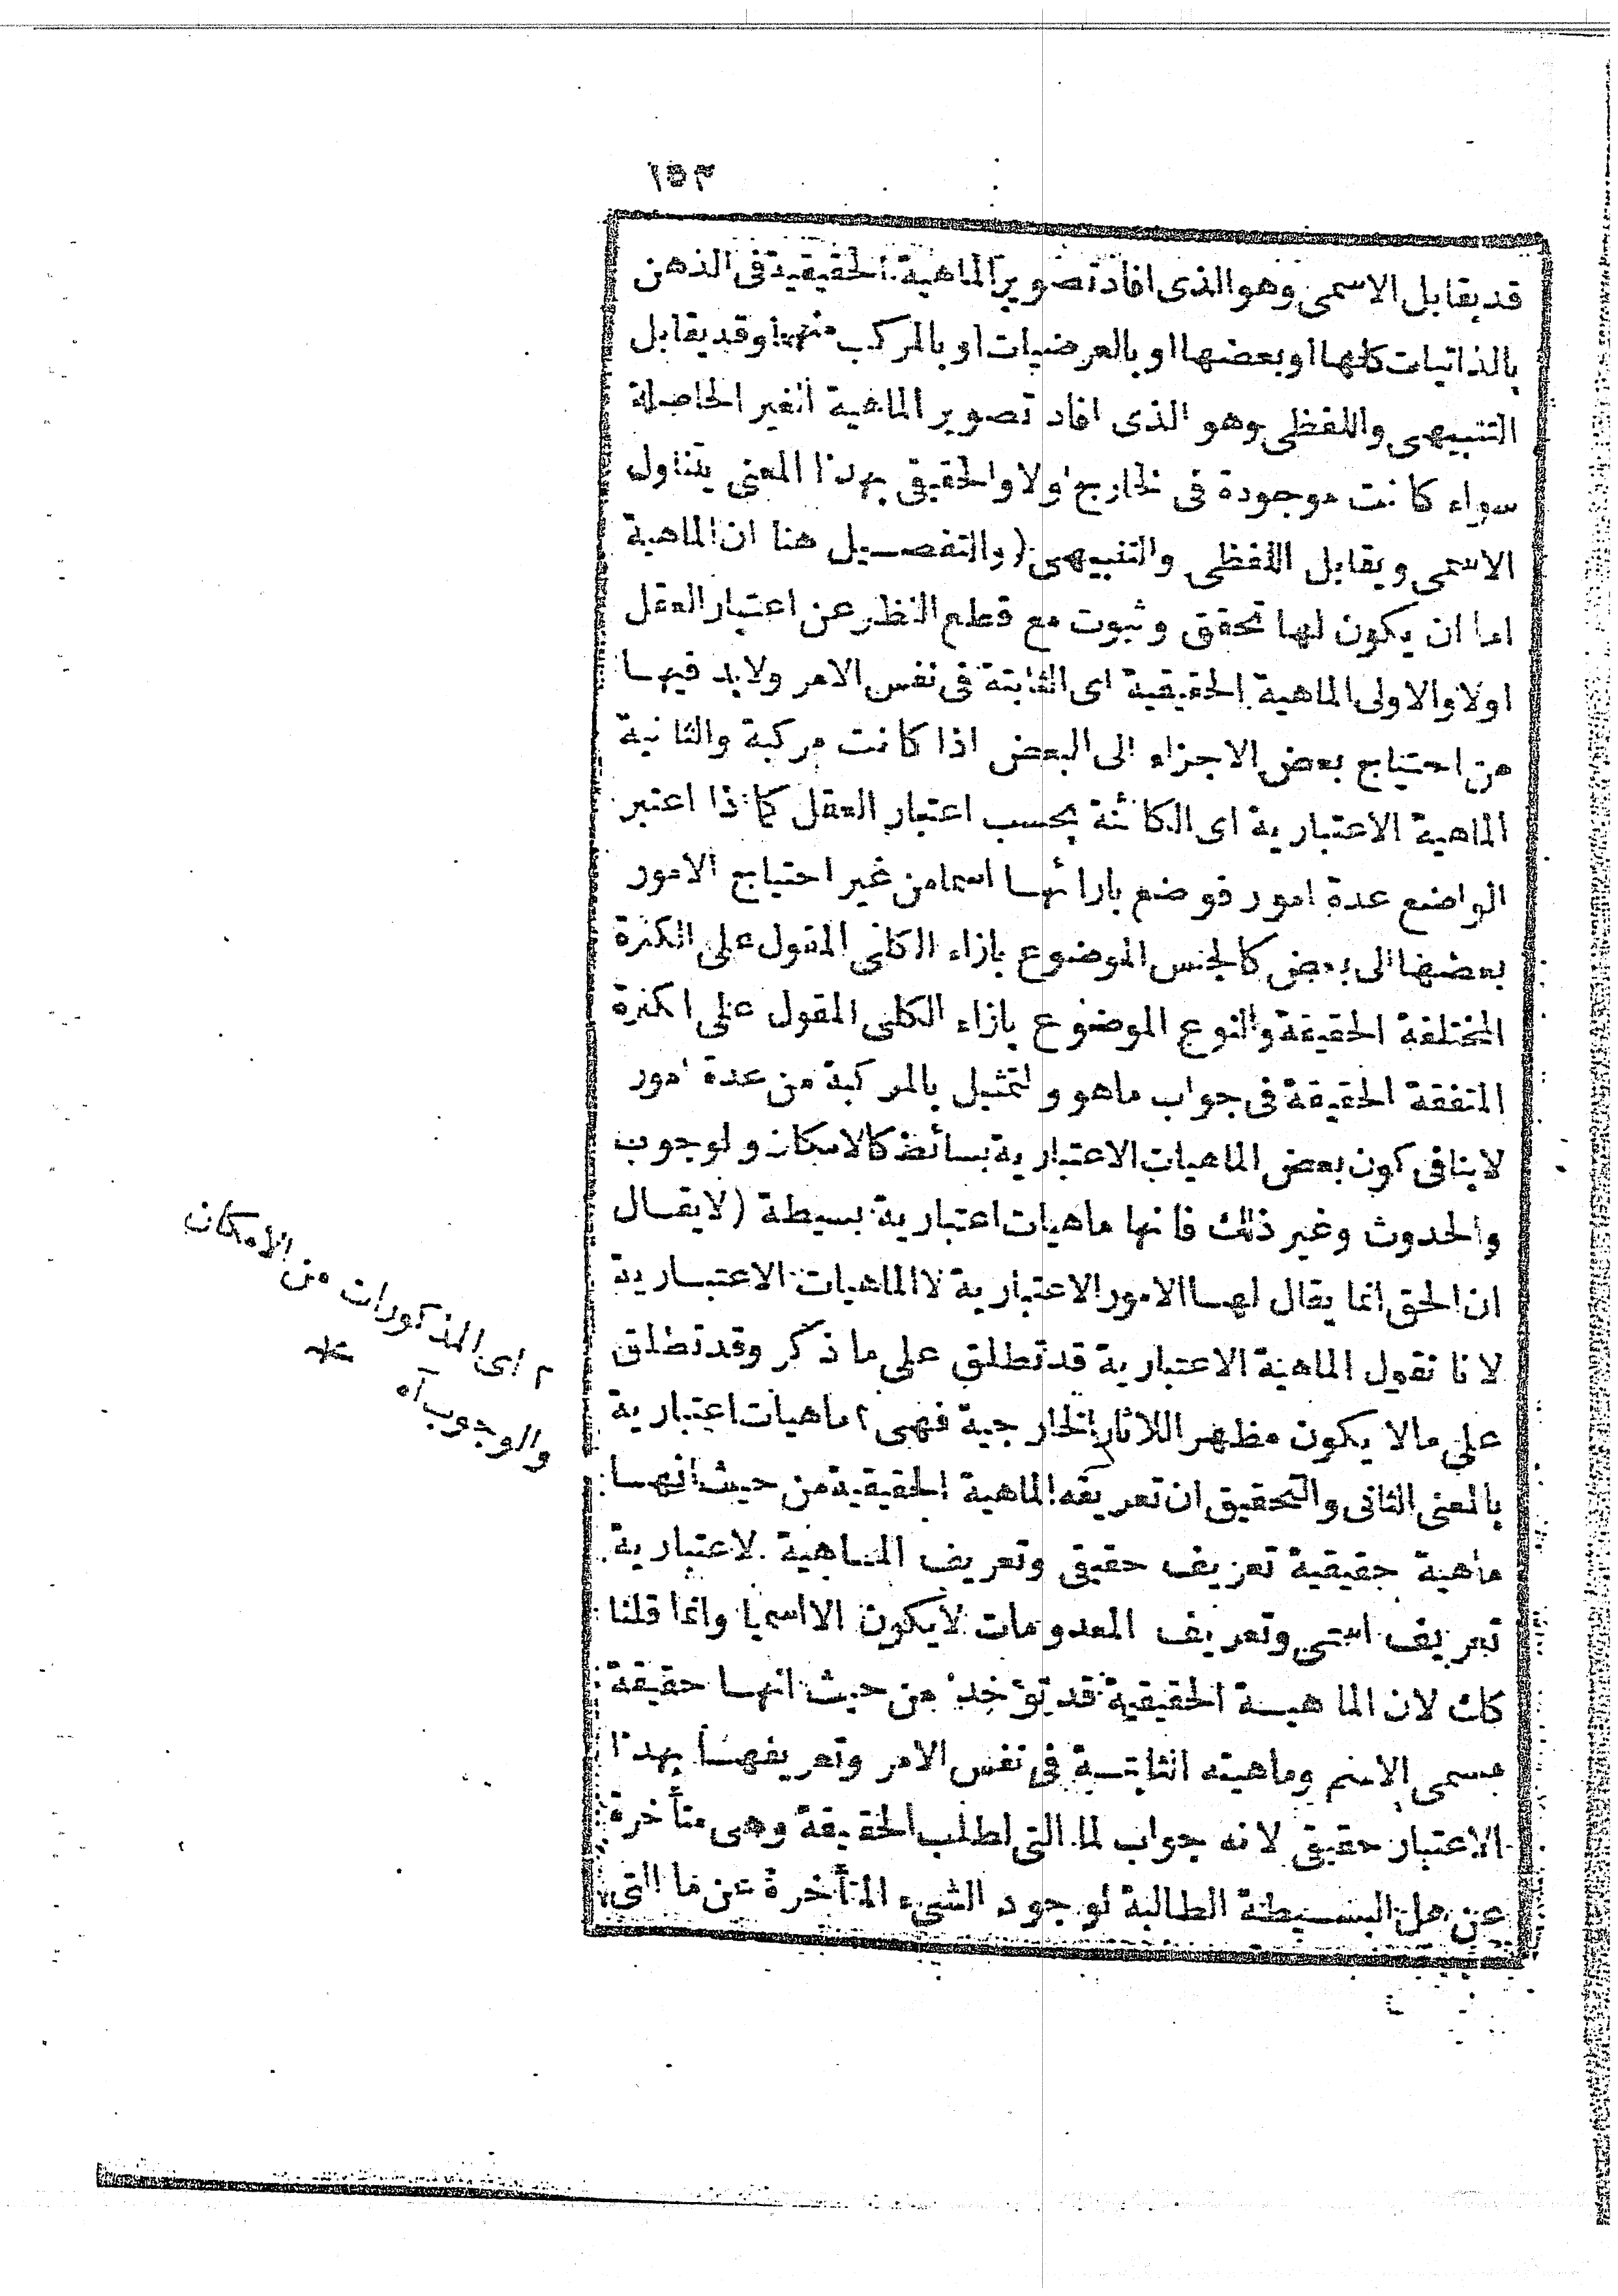 ١٥٣
قد يقابل الاسمى وهو الذى افاد تصوير الماهية الحقيقية فى الذهن
بالذاتيات كلها او بعضها او بالعرضيات او بالمركب منهما وقد يقابل
التنبيهى واللفظى وهو الذى افاد تصوير الماهية الغير الحاصلة
سواء كانت موجودة فى الخارج اولا والحقيقى بهذا المعنى يتناول
الاسمى ويقابل اللفظى والتنبيهى (والتفصيل هنا ان الماهية
اما ان يكون لها تحقق وثبوت مع قطع النظر عن اعتبار العقل
اولا والاولى الماهية الحقيقية اى الثابتة فى نفس الامر ولابد فيها
من احتياج بعض الاجزاء الى البعض اذا كانت مركبة والثانية
الماهية الاعتبارية اى الكائنة بحسب اعتبار العقل كما اذا اعتبر
الواضع عدة امور فوضع بازائها اسما من غير احتياج الامور
بعضها الى بعض كالجنس الموضوع بازاء الكلى المقول على الكثرة
المختلفة الحقيقة والنوع الموضوع بازاء الكلى المقول على الكثرة
المتفقة الحقيقة فى جواب ماهو والتمثيل بالمركبة من عدة امور
لاينافى كون بعض الماهيات الاعتبارية بسائط كالامكان والوجوب
والحدوث وغير ذلك فانها ماهيات اعتبارية بسيطة (لايقال
ان الحق انما يقال لها الامور الاعتبارية لا الماهيات الاعتبارية
لانا نقول الماهية الاعتبارية قد تطلق على ما ذكر وقد تطلق
على مالا يكون مظهر اللاثار الخارجية فهى ٢ ماهيات اعتبارية
بالمعنى الثانى والتحقيق ان تعريفه الماهية الحقيقية من حيث انها
ماهية حقيقية تعريف حقيقى وتعريف الماهية الاعتبارية
تعريف اسمى وتعريف المعدومات لايكون الا اسميا وانما قلنا
كك لان الماهية الحقيقية قد تؤخذ من حيث انها حقيقة
مسمى الاسم وماهيته الثابتة فى نفس الامر وتعريفها بهذا
الاعتبار حقيقى لانه جواب لما التى لطلب الحقيقة وهى متأخرة
عن هل البسيطة الطالبة لوجود الشىء المتأخرة عن ما التى
٢ اى المذكورات من الامكان
والوجوب آه